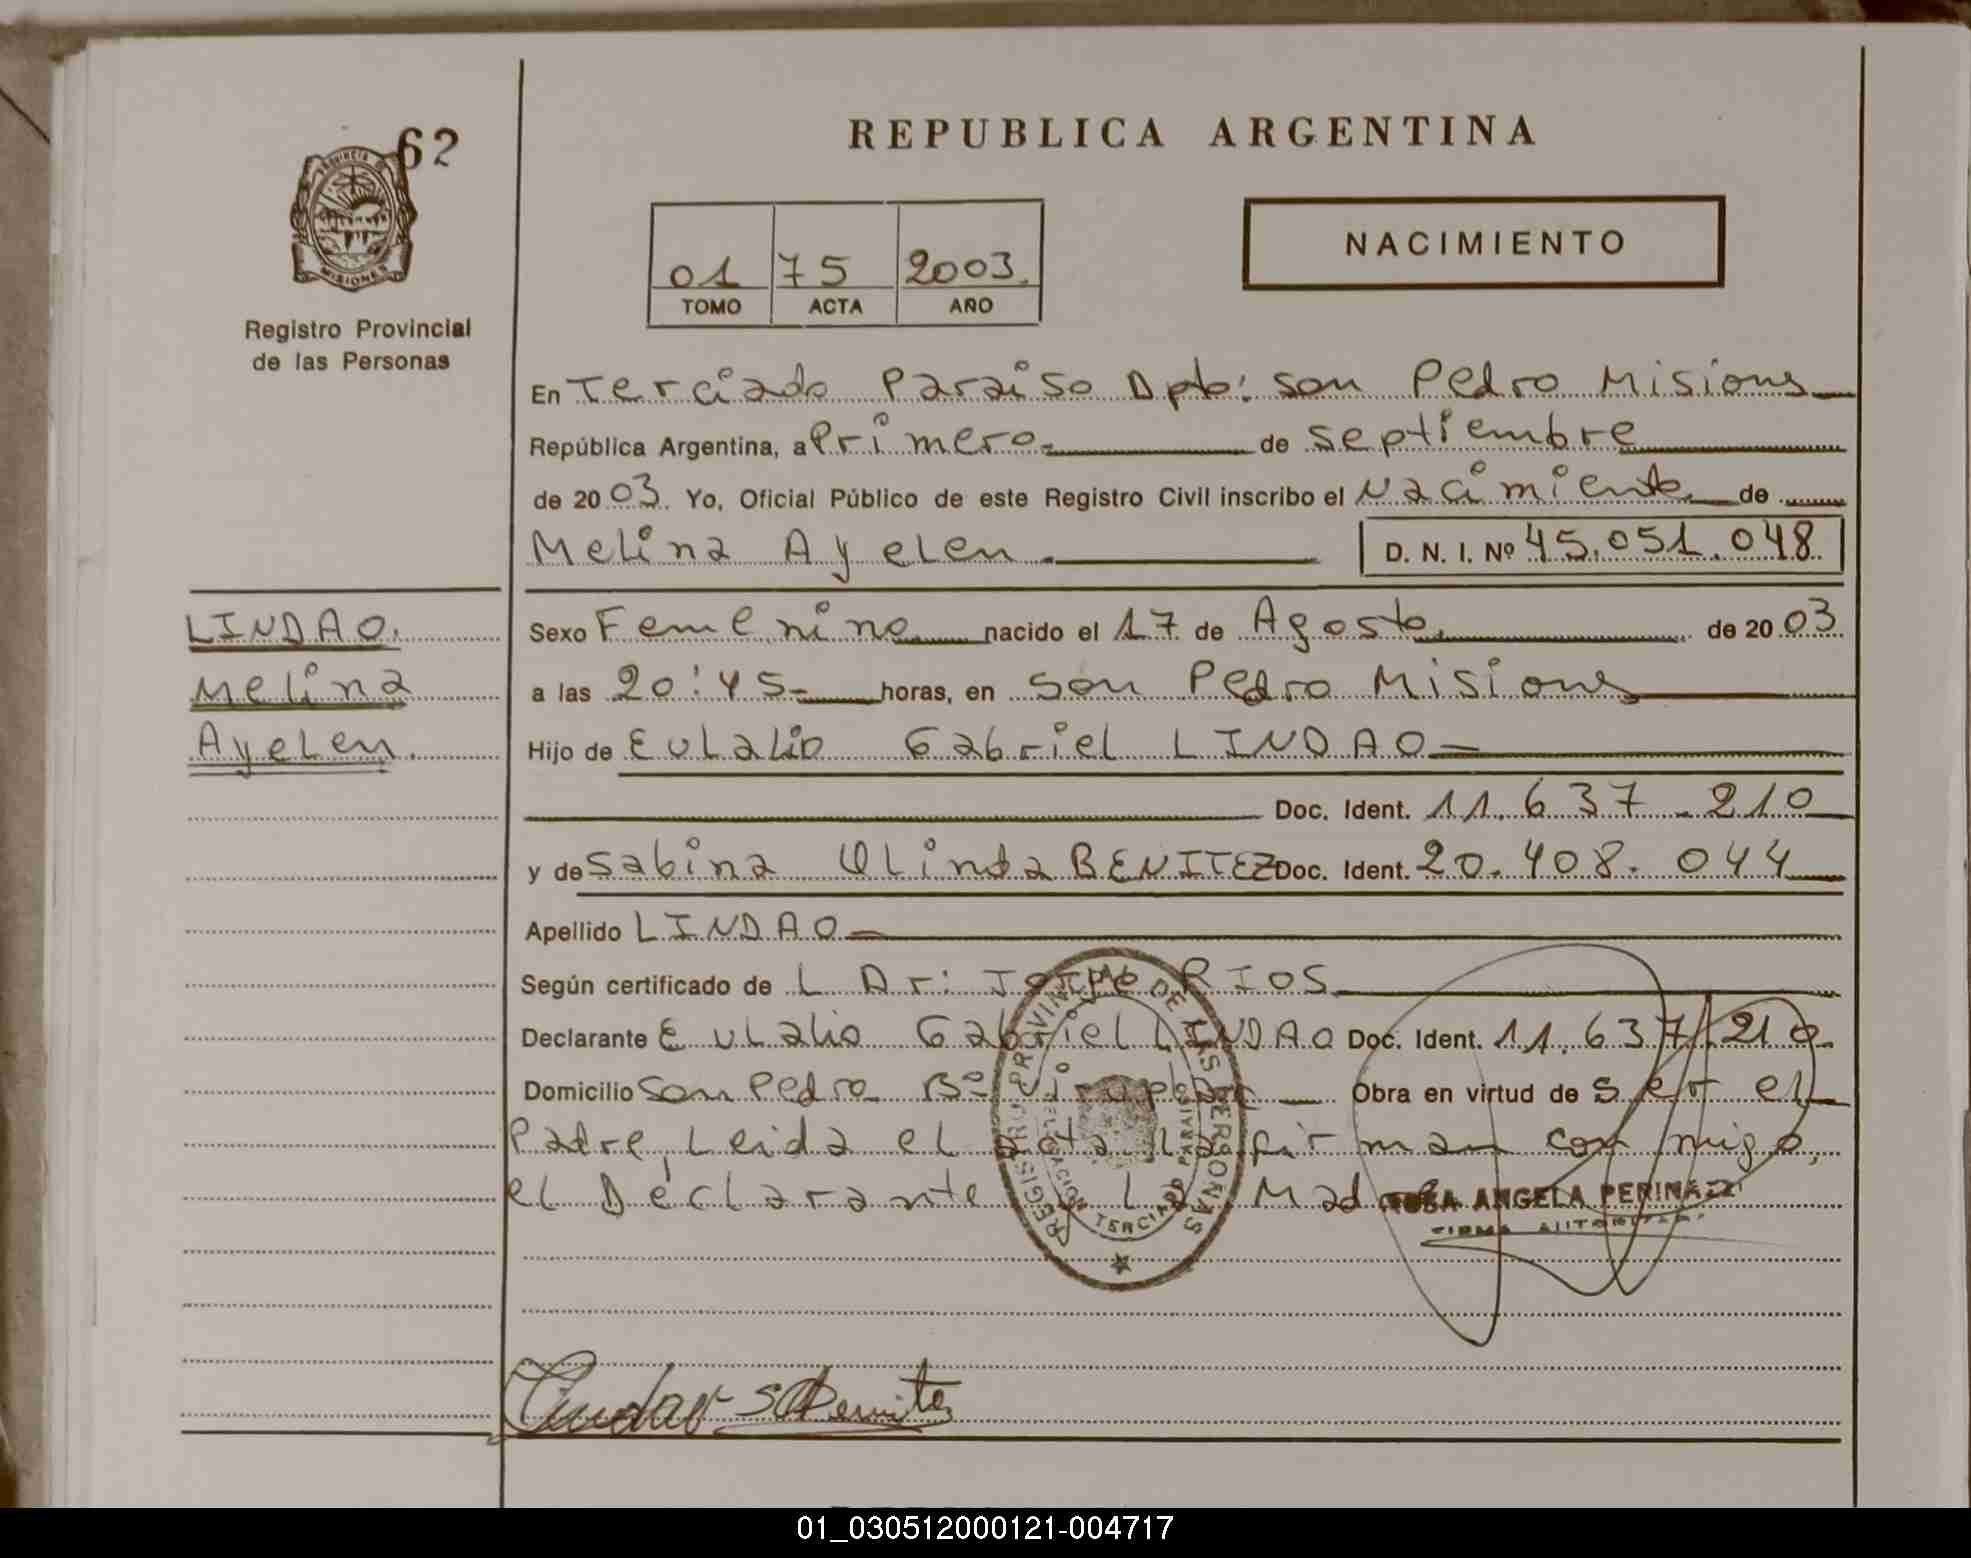 62
PROVINCIA DE
MISIONES
Registro Provincial
de las Personas
REPUBLICA ARGENTINA
01 75 2003.
TOMO ACTA AÑO
NACIMIENTO
En Terciado Paraiso Dpto: San Pedro Misiones
República Argentina, a Primero de septiembre
de 20 03. Yo, Oficial Público de este Registro Civil inscribo el Nacimiento de
Melina Ayelen. D. N. I. Nº 45.051.048
LINDAO.
Melina
Ayelen.
Sexo Femenino nacido el 17 de Agosto de 20 03
a las 20:45 horas, en San Pedro Misiones
Hijo de Eulalio Gabriel LINDAO
Doc. Ident. 11.637.210
y de Sabina Olinda BENITEZ Doc. Ident. 20.408.044
Apellido LINDAO
Según certificado de L Dr: Jorge RIOS
Declarante Eulalio Gabriel LINDAO Doc. Ident. 11.637.210
Domicilio San Pedro Bº Obra en virtud de ser el
Padre, Leida el acta la firman conmigo,
el Declarante y La Madre
REGISTRO PROVINCIAL DE LAS PERSONAS
DELEGACION TERCIADO PARAISO
ROSA ANGELA PERINAZZI
FIRMA AUTORIZADA
Lindao S O Benitez
01_030512000121-004717